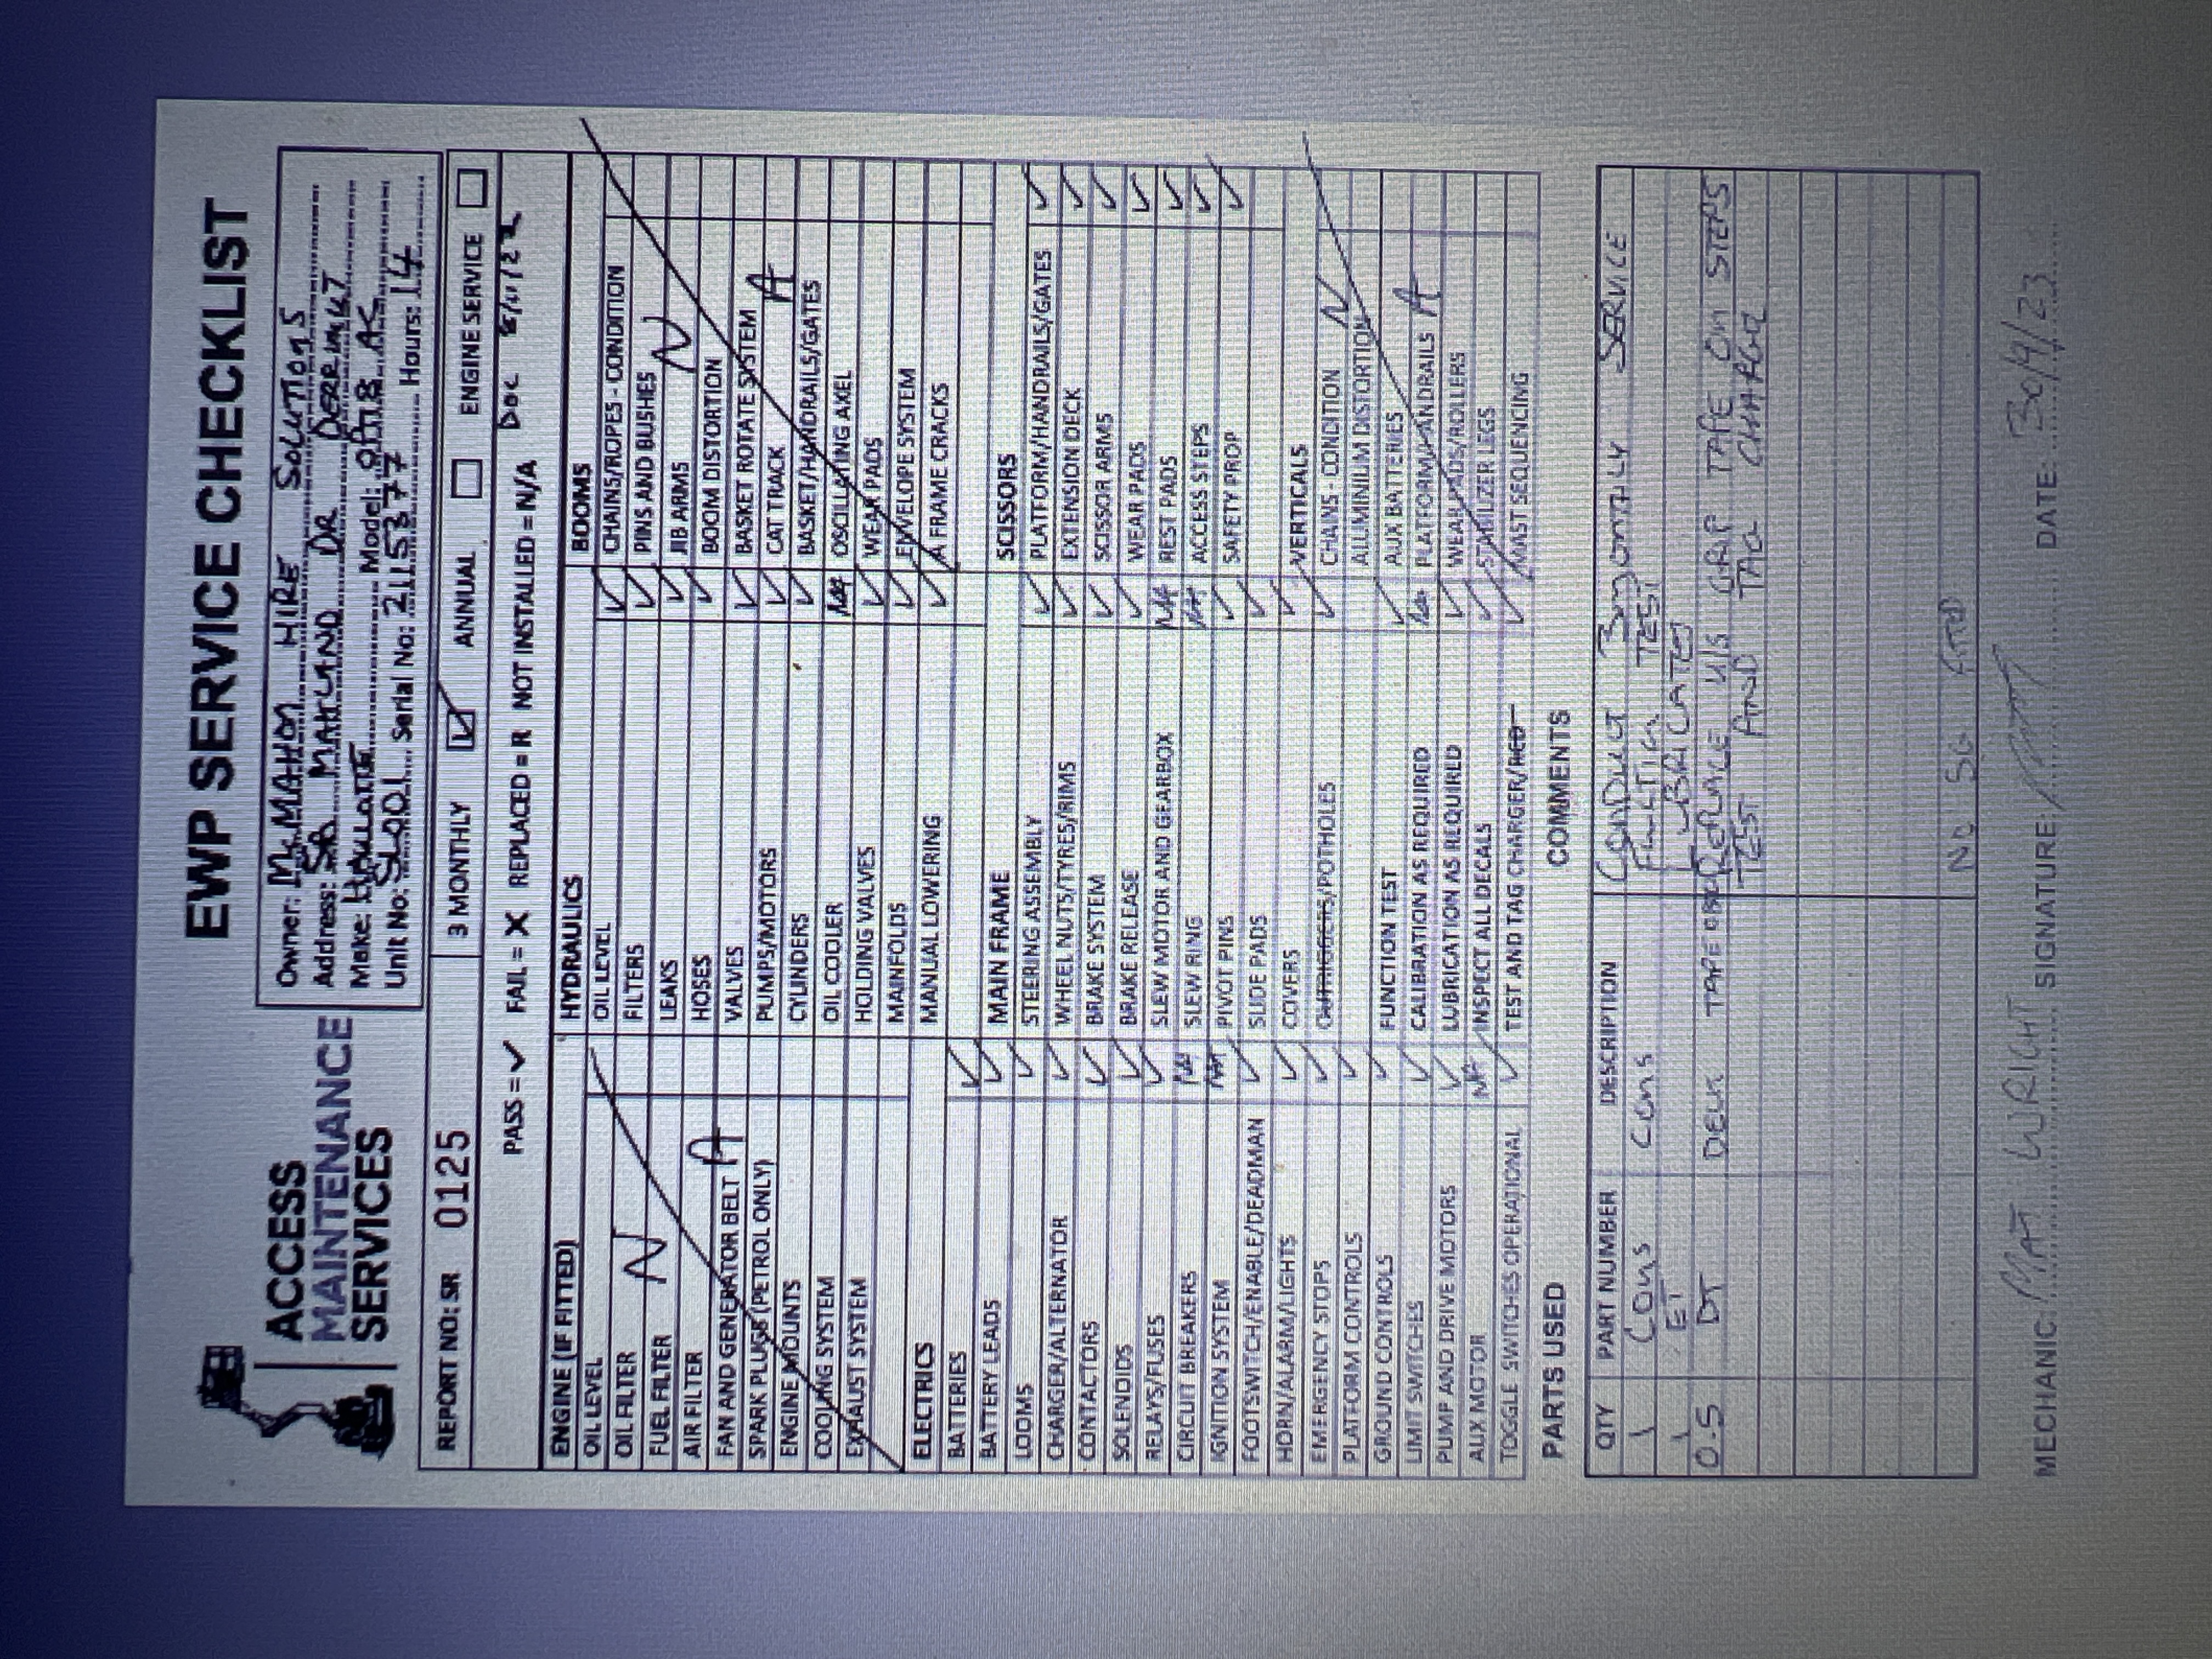 ACCESS
MAINTENANCE
SERVICES
EWP SERVICE CHECKLIST
Owner: McMAHON HIRE SOLUTIONS
Address: 5A MAITLAND DR DERRIMUT
Make: HAULOTTE Model: OPT8 AC
Unit No: SL001 Serial No: 2115377 Hours: 14
REPORT NO: SR 0125 3 MONTHLY ☑ ANNUAL ☐ ENGINE SERVICE ☐
PASS = ✓ FAIL = X REPLACED = R NOT INSTALLED = N/A DOC 8/11/22
ENGINE (IF FITTED)
OIL LEVEL
OIL FILTER
FUEL FILTER
AIR FILTER
FAN AND GENERATOR BELT
SPARK PLUGS (PETROL ONLY)
ENGINE MOUNTS
COOLING SYSTEM
EXHAUST SYSTEM
N A
ELECTRICS
BATTERIES ✓
BATTERY LEADS ✓
LOOMS ✓
CHARGER/ALTERNATOR ✓
CONTACTORS ✓
SOLENOIDS ✓
RELAYS/FUSES ✓
CIRCUIT BREAKERS NA
IGNITION SYSTEM NA
FOOTSWITCH/ENABLE/DEADMAN ✓
HORN/ALARM/LIGHTS ✓
EMERGENCY STOPS ✓
PLATFORM CONTROLS ✓
GROUND CONTROLS ✓
LIMIT SWITCHES ✓
PUMP AND DRIVE MOTORS ✓
AUX MOTOR NA
TOGGLE SWITCHES OPERATIONAL ✓
HYDRAULICS
OIL LEVEL ✓
FILTERS ✓
LEAKS ✓
HOSES ✓
VALVES ✓
PUMPS/MOTORS ✓
CYLINDERS ✓
OIL COOLER NA
HOLDING VALVES ✓
MAINFOLDS ✓
MANUAL LOWERING ✓
MAIN FRAME
STEERING ASSEMBLY ✓
WHEEL NUTS/TYRES/RIMS ✓
BRAKE SYSTEM ✓
BRAKE RELEASE ✓
SLEW MOTOR AND GEARBOX NA
SLEW RING NA
PIVOT PINS ✓
SLIDE PADS ✓
COVERS ✓
OUTRIGGERS/POTHOLES ✓
FUNCTION TEST ✓
CALIBRATION AS REQUIRED NA
LUBRICATION AS REQUIRED ✓
INSPECT ALL DECALS ✓
TEST AND TAG CHARGER/RCD ✓
BOOMS
CHAINS/ROPES - CONDITION
PINS AND BUSHES
JIB ARMS
BOOM DISTORTION
BASKET ROTATE SYSTEM
CAT TRACK
BASKET/HANDRAILS/GATES
OSCILLATING AXEL
WEAR PADS
ENVELOPE SYSTEM
A FRAME CRACKS
N A
SCISSORS
PLATFORM/HANDRAILS/GATES ✓
EXTENSION DECK ✓
SCISSOR ARMS ✓
WEAR PADS ✓
REST PADS ✓
ACCESS STEPS ✓
SAFETY PROP ✓
VERTICALS
CHAINS - CONDITION
ALLUMINIUM DISTORTION
AUX BATTERIES
PLATFORM/HANDRAILS
WEAR PADS/ROLLERS
STABILIZER LEGS
MAST SEQUENCING
N A
PARTS USED
COMMENTS
QTY PART NUMBER DESCRIPTION
1 CONS CONS
1 ET
0.5 DT DECK TAPE
CONDUCT 3 MONTHLY SERVICE
FUNCTION TEST
LUBRICATED
REPLACE U/S GRIP TAPE ON STEPS
TEST AND TAG CHARGER
NO SG FTD
MECHANIC: MAT WRIGHT SIGNATURE: DATE: 30/9/23